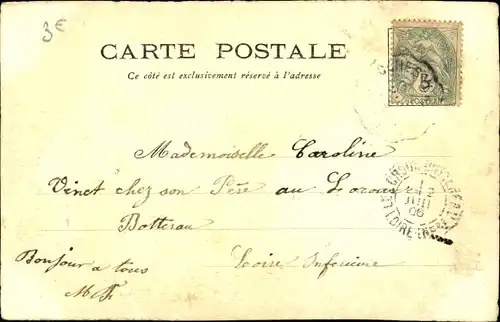 3€
CARTE POSTALE
Ce côté est exclusivement réservé à l'adresse
Mademoiselle Caroline
Vinet chez son Père au Loroux
Bottereau
Bonjour a tous
Loire Inferieure
M F
2
JUIN
06
LOIRE INFRE